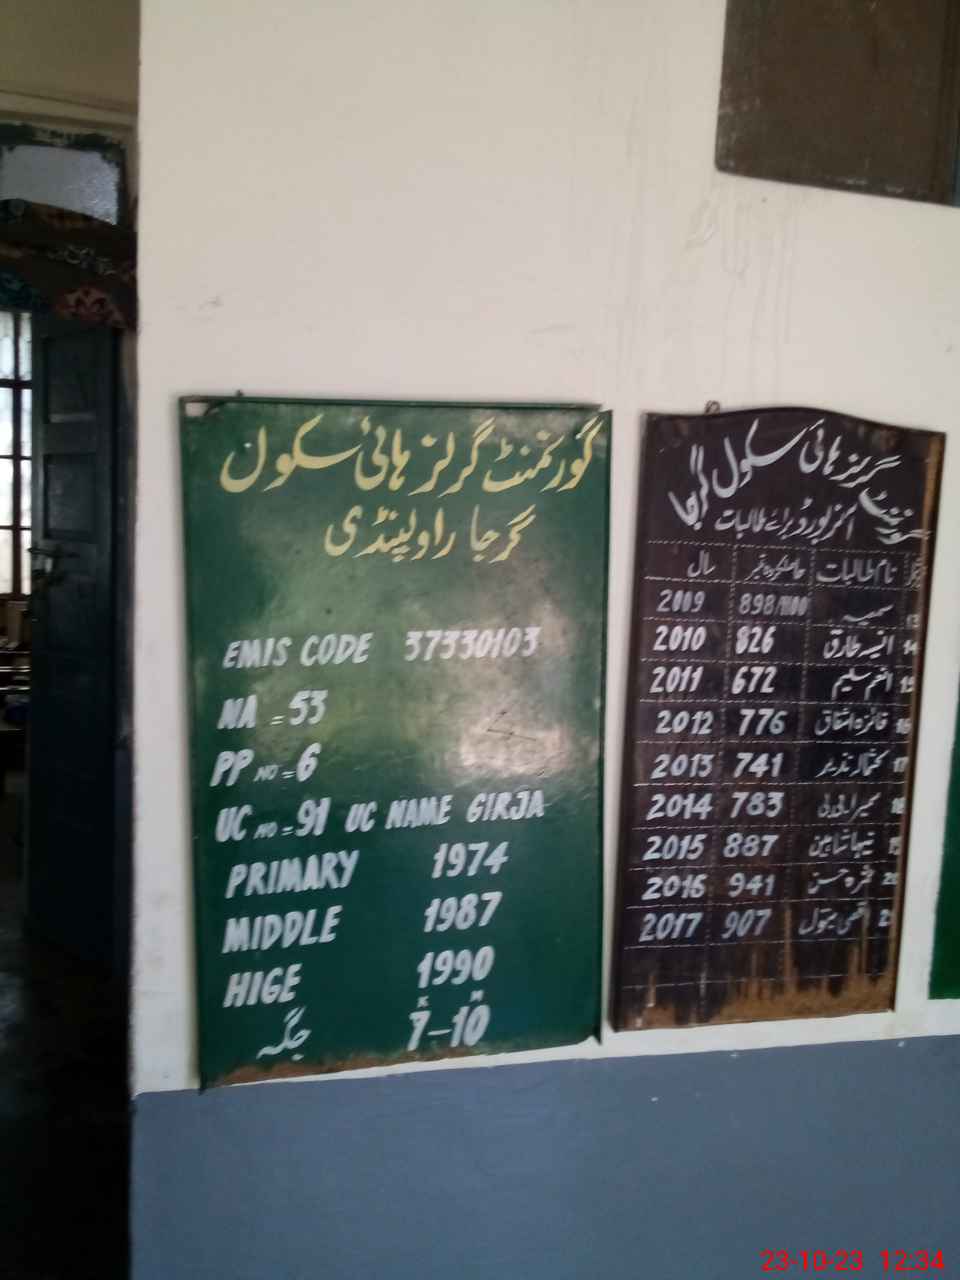 گورنمنٹ گرلز ہائی سکول
گرجا راولپنڈی
EMIS CODE 37330103
NA = 53
PP NO = 6
UC NO = 91 UC NAME GIRJA
PRIMARY 1974
MIDDLE 1987
HIGE 1990
K M
جگہ 7-10
گورنمنٹ گرلز ہائی سکول گرجا
آنرز بورڈ برائے طالبات
نام طالبات حاصل کردہ نمبر سال
13 898/1100 2009
14 انیسہ طارق 826 2010
15 انعم سلیم 672 2011
16 فائزہ اشفاق 776 2012
17 741 2013
18 سمیرا بی بی 783 2014
19 نیہا شاہین 887 2015
20 941 2016
2 اقصیٰ بتول 907 2017
23-10-23 12:34